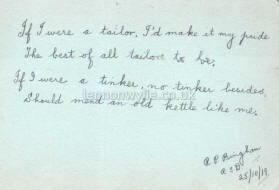 If I were a tailor, I'd make it my pride
The best of all tailors to be,
If I were a tinker, no tinker besides,
Should mend an old kettle like me.
lennonwylie.co.uk
A P Bingham
25/10/19